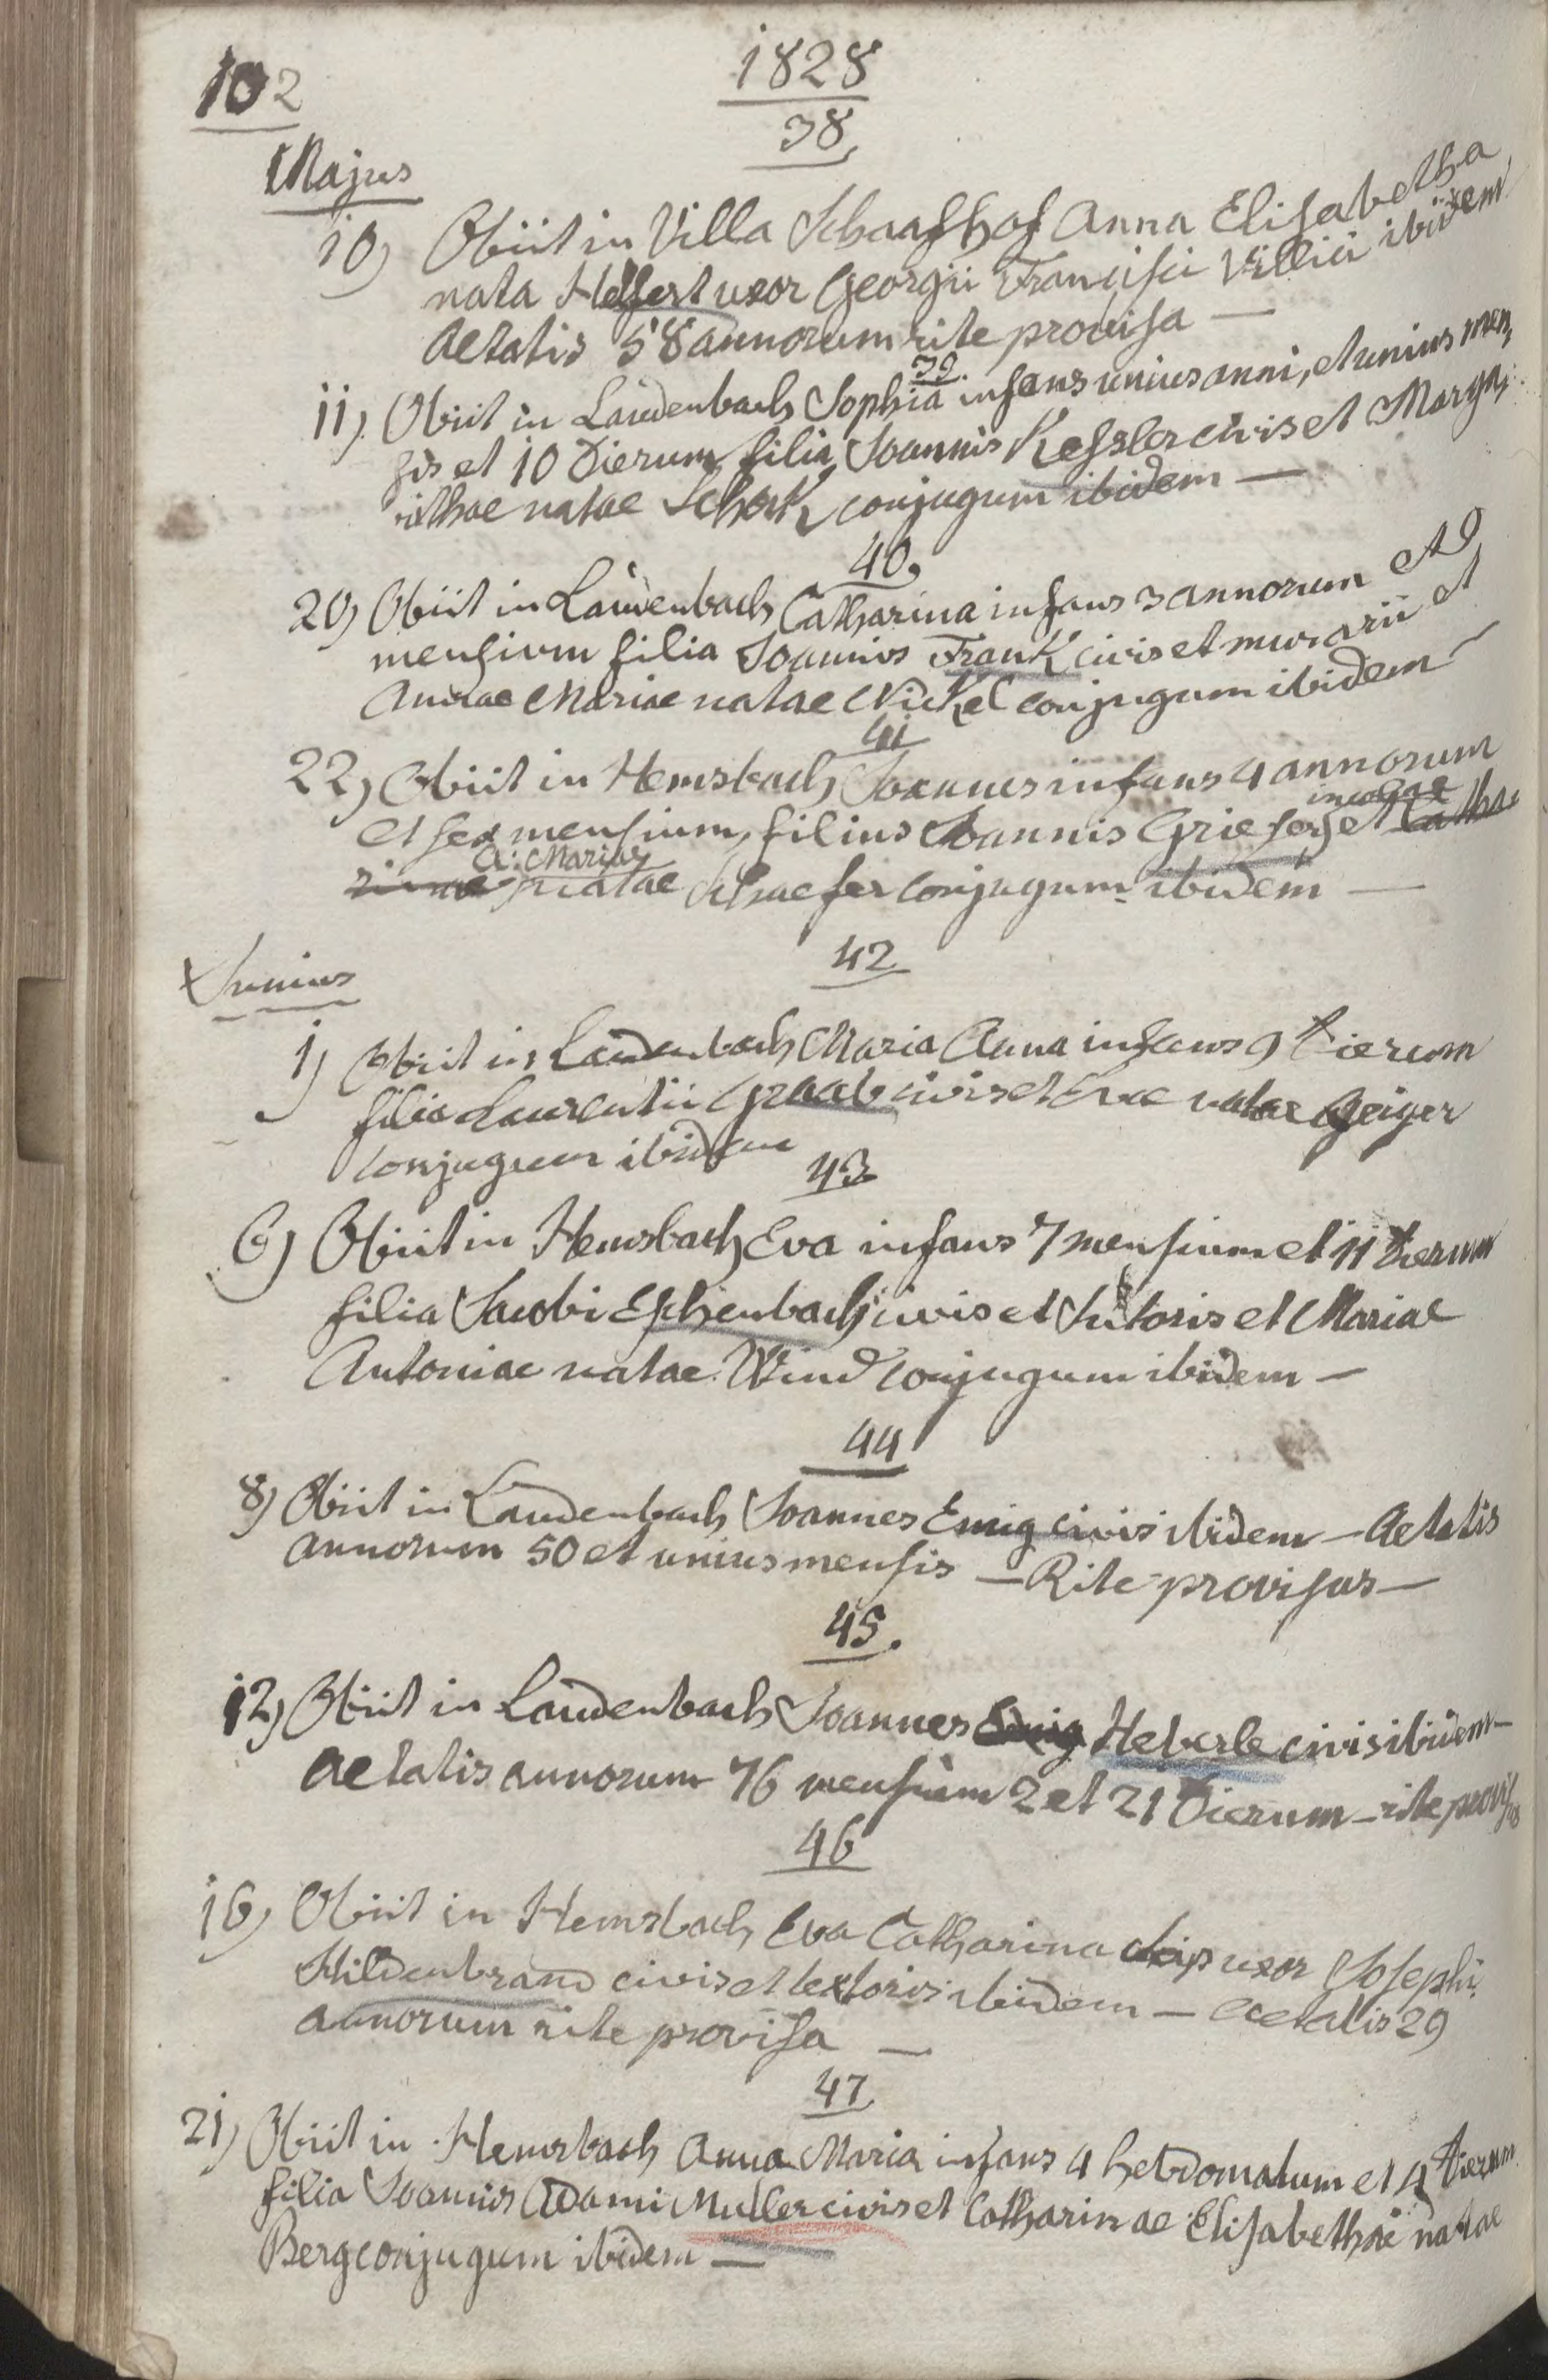 102
1828
38
Majus
10) Obiit in Villa Schaafhof Anna Elisabetha
nata Helfert uxor Georgii Francisci Villici ibidem
aetatis 58 annorum rite provisa —
39.
11) Obiit in Laudenbach Sophia infans unius anni, et unius men,
sis et 10 dierum filia Joannis Kessler civis et Marga,
rithae natae Schork conjugum ibidem —
40,
20) Obiit in Laudenbach Catharina infans 3 annorum et 9
mensium filia Joannis Frank civis et murarii et
Annae Mariae natae Nickel conjugum ibidem —
41
22) Obiit in Hemsbach Joannes infans 4 annorum
incolae
et sex mensium, filius Joannis Grieser, et Catha
A: Mariae
rinae natae Schaefer conjugum ibidem —
42
Junius
1) Obiit in Laudenbach Maria Anna infans 9 dierum
filia Laurentii Graab civis et Evae natae Geiger
conjugum ibidem
43
6) Obiit in Hemsbach Eva infans 7 mensium et 11 dierum
filia Jacobi Eschenbach civis et Sutoris et Mariae
Antoniae natae Wind conjugum ibidem —
44
8) Obiit in Laudenbach Joannes Emig civis ibidem — Aetatis
annorum 50 et unius mensis — Rite provisus —
45.
12) Obiit in Laudenbach Joannes Emig Heberle civis ibidem —
aetatis annorum 76 mensium 2 et 21 Dierum — rite provisus
46
16) Obiit in Hemsbach Eva Catharina uxor Josephi
Hildenbrand civis et textoris ibidem — aetatis 29
annorum rite provisa —
47
21) Obiit in Hemsbach Anna Maria infans 4 hebdomatum et 4 dierum
filia Joannis Adami Muller civis et Catharinae Elisabethae natae
Berg conjugum ibidem —